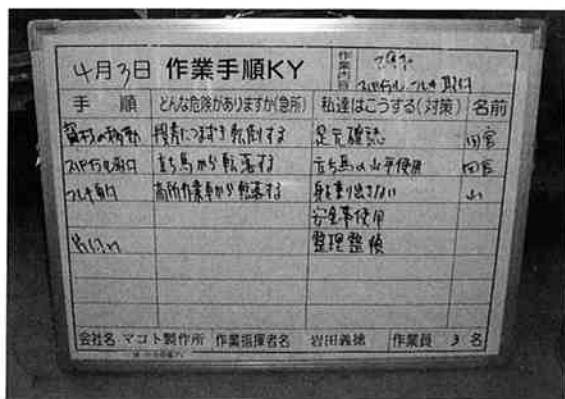 4月3日 作業手順KY 作業内容
手順 どんな危険がありますか(急所) 私達はこうする(対策) 名前
資材の移動 につまずき転倒する 足元確認
取付 立ち馬から転落する 立ち馬の水平使用
取付 高所作業車から転落する 身を乗り出さない
安全帯使用
片付け 整理整頓
会社名 マコト製作所 作業指揮者名 岩田義徳 作業員 3名